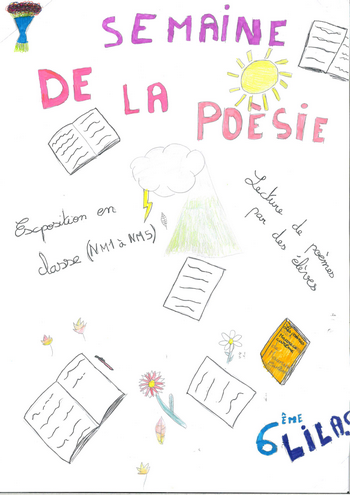 SEMAINE
DE LA POÈSIE
Exposition en
classe (NM1 à NM5)
Lecture de poèmes
par des élèves
6ÈME LILAS